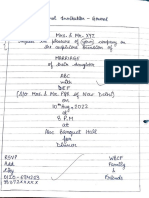 Formal Invitation - General
Mrs. & Mr. XYZ
request the pleasure of your company on
the auspicious occasion of
MARRIAGE
of their daughter
ABC
with
DEF
(S/o Mrs. & Mr. PQR of New Delhi)
on
10th Aug, 2023
at
8 P.M
at
Banquet Hall
for
Dinner
RSVP WBCF
Add Family
City &
0120-674203 Friends